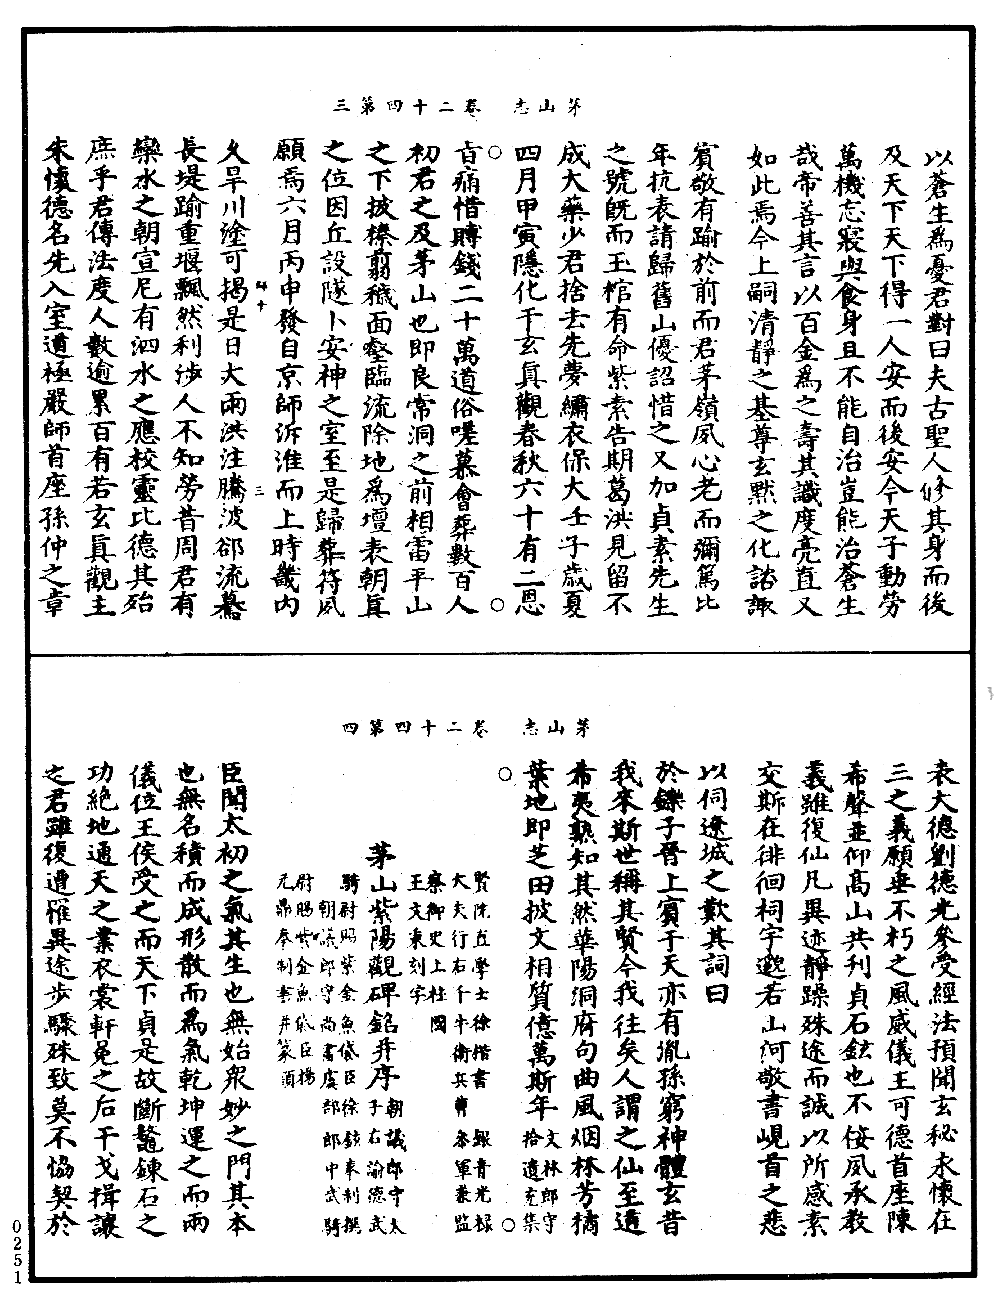 茅山志　卷二十四第三
以蒼生爲憂君對曰夫古聖人修其身而後
及天下天下得一人安而後安今天子勤勞
萬機忘寢與食身且不能自治豈能治蒼生
哉帝善其言以百金爲之壽其識度亮直又
如此焉今上嗣清靜之基尊玄默之化諮諏
賓敬有踰於前而君茅嶺夙心老而彌篤比
年抗表請歸舊山優詔惜之又加貞素先生
之號旣而王棺有命紫素告期葛洪見留不
成大藥少君捨去先夢繡衣保大壬子歲夏
四月甲寅隱化于玄眞觀春秋六十有二恩
旨痛惜賻錢二十萬道俗嗟慕會葬數百人
初君之及茅山也卽良常洞之前相雷平山
之下披榛翦穢面壑臨流除地爲壇表朝眞
之位因丘設隧卜安神之室至是歸葬符夙
願焉六月丙申發自京師泝淮而上時畿內
久旱川塗可揭是日大雨洪注騰波郤流驀
長堤踰重堰飄然利涉人不知勞昔周君有
欒水之朝宣尼有泗水之應校靈比德其殆
庶乎君傳法度人數逾累百有若玄眞觀主
朱懷德名先入室道極嚴師首座孫仲之章
茅山志　卷二十四第四
表大德劉德光參受經法預聞玄秘永懷在
三之義願垂不朽之風威儀王可德首座陳
希聲並仰高山共刋貞石鉉也不佞夙承教
義雖復仙凡異迹靜躁殊途而誠以所感素
交斯在徘徊祠宇邈若山河敬書峴首之悲
以伺遼城之歎其詞曰
於鑠子晉上賓于天亦有胤孫窮神體玄昔
我來斯世稱其賢今我往矣人謂之仙至道
希夷孰知其然華陽洞府句曲風烟林芳擒
葉地卽芝田披文相質億萬斯年文林郎守拾遺充集
賢院直學士徐楷書　銀青光祿
大夫行右千牛衛兵曹參軍兼監
察御史上柱國
王文秉刻字
茅山紫陽觀碑銘并序朝議郎守太子右諭德武
騎尉賜紫金魚袋臣徐鉉奉制撰
朝議郎守尚書虞部郎中武騎
尉賜紫金魚袋臣楊
元鼎奉制書并篆額
臣聞太初之氣其生也無始衆妙之門其本
也無名積而成形散而爲氣乾坤運之而兩
儀位王侯受之而天下貞是故斷鼇鍊石之
功絶地通天之業衣裳軒冕之后干戈揖讓
之君雖復遭罹異途步驟殊致莫不協契於
0251